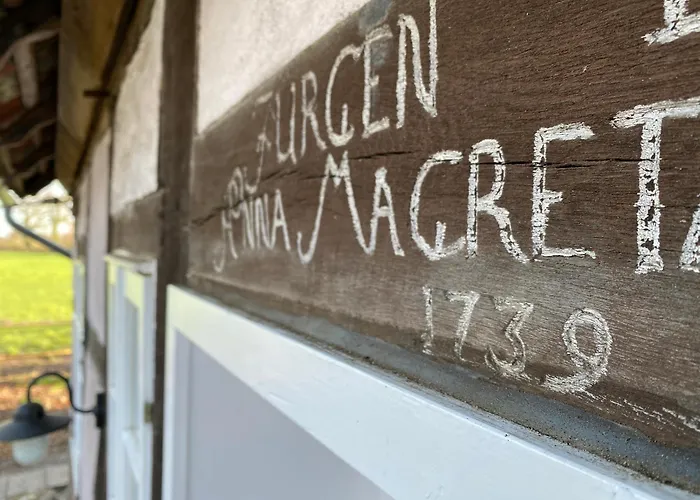 JURGEN
ANNA MAGRETA
1739